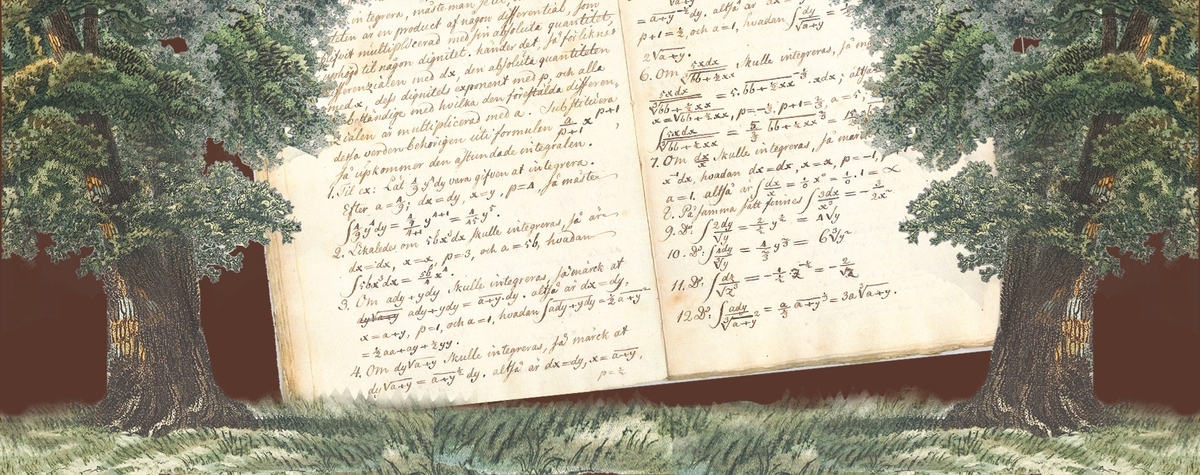 integrera, måste man
ten är en product af någon differential, som
multiplicerad med sin absoluta quantitet,
til någon dignitet. händer det, så förleknes
differenzialen med dx, den absoluta quantiteten
med x, dess dignitets exponent med p, och alla
beständige med hvilka den föreställda differen,
zialen är multiplicerad med a. Substitutera
dessa verden behörigen uti formulen a/p+1 x^p+1,
så upkommer den åstundade integralen.
1. Til ex: Låt 4/9 y^4dy vara gifven at integrera.
Efter a = 4/9, dx = dy, x = y, p = 4, så måste
∫4/9 y^4dy = 4/9/4+1 y^4+1 = 4/45 y^5.
2. Likaledes om 56x^3dx skulle integreras, så är
dx = dx, x = x, p = 3, och a = 56, hvadan
∫56x^3dx = 56/4 x^4.
3. Om ady + ydy skulle integreras, så märck at
ady + ydy = a+y.dy. altså är dx = dy,
x = a+y, p = 1, och a = 1, hvadan ∫ady+ydy = 1/2 a+y^2
= 1/2 aa + ay + 1/2 yy.
4. Om dy√a+y skulle integreras, så märck at
dy√a+y = a+y^1/2 dy. altså är dx = dy, x = a+y,
p = 1/2
= a+y^-1/2 dy. altså är dx
p+1 = 1/2, och a = 1, hvadan ∫dy/√a+y =
2√a+y.
6. Om 5xdx/∛bb+1/2xx skulle integreras, så
5xdx/∛bb+1/2xx = 5.bb+1/2xx^-1/3.xdx; altså
x = bb+1/2xx, p = -1/3, p+1 = 2/3, a = 5,
∫5xdx/∛bb+1/2xx = 5/2/3 bb+1/2xx^2/3 =
7. Om dx/x skulle integreras, så
x^-1dx, hvadan dx = dx, x = x, p = -1,
a = 1. altså är ∫dx/x = 1/0 x^0 = 1/0.1 = ∞
8. På samma sätt finnes ∫3dx/x^3 = -3/2x^2
9. D:o ∫2dy/√y = 2/1/2 y^1/2 = 4√y
10. D:o ∫4dy/∛y = 4/2/3 y^2/3 = 6∛y^2
11. D:o ∫dz/√z^3 = -1/1/2 z^-1/2 = -2/√z
12. D:o ∫ady/∛a+y^2 = a/1/3 a+y^1/3 = 3a∛a+y.